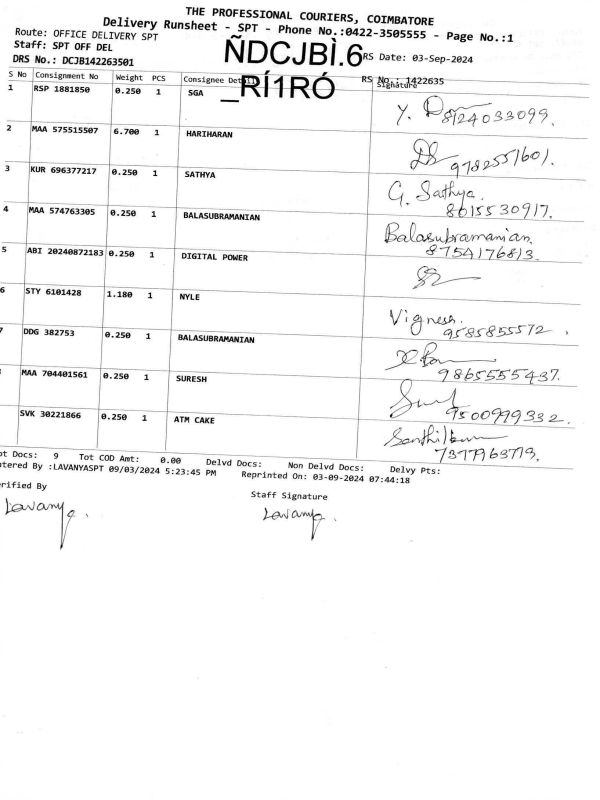 THE PROFESSIONAL COURIERS, COIMBATORE
Delivery Runsheet - SPT - Phone No.:0422-3505555 - Page No.:1
Route: OFFICE DELIVERY SPT
Staff: SPT OFF DEL
DRS No.: DCJB142263501
ÑDCJBÌ.6
_RÍ1RÓ
RS Date: 03-Sep-2024
RS No.: 1422635
S No Consignment No Weight PCS Consignee Details Signature
1 RSP 1881850 0.250 1 SGA Y. 8124033099.
2 MAA 575515507 6.700 1 HARIHARAN 9782551601.
3 KUR 696377217 0.250 1 SATHYA G. Sathya. 8015530917.
4 MAA 574763305 0.250 1 BALASUBRAMANIAN Balasubramanian. 8754176813.
5 ABI 20240872183 0.250 1 DIGITAL POWER
6 STY 6101428 1.180 1 NYLE Vignesh. 9585855572.
7 DDG 382753 0.250 1 BALASUBRAMANIAN 9865555437.
MAA 704401561 0.250 1 SURESH 9500999332.
SVK 30221866 0.250 1 ATM CAKE Senthilkum 7377963779.
ot Docs: 9 Tot COD Amt: 0.00 Delvd Docs: Non Delvd Docs: Delvy Pts:
ntered By :LAVANYASPT 09/03/2024 5:23:45 PM Reprinted On: 03-09-2024 07:44:18
erified By Staff Signature
Lavanya. Lavanya.